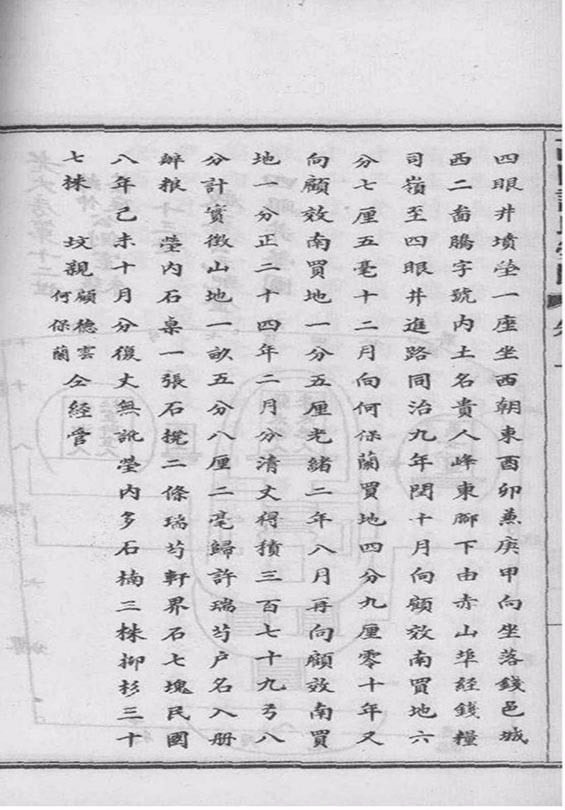 四眼井墳塋一座坐西朝東酉卯兼庚甲向坐落錢邑城
西二啚騰字號內土名貴人峰東腳下由赤山埠經錢糧
司嶺至四眼井進路同治九年閏十月向顧效南買地六
分七厘五毫十二月向何保蘭買地四分九厘零十年又
向顧效南買地一分五厘光緒二年八月再向顧效南買
地一分正二十四年二月分清丈得積三百七十九弓八
分計實徵山地一畝五分八厘二毫歸許瑞芍戶名入册
辦粮　塋內石桌一張石櫈二條瑞芍軒界石七塊民國
八年己未十月分復丈無訛塋內多石楠三株柳杉三十
七株　坟親顧德雲何保蘭仝經管